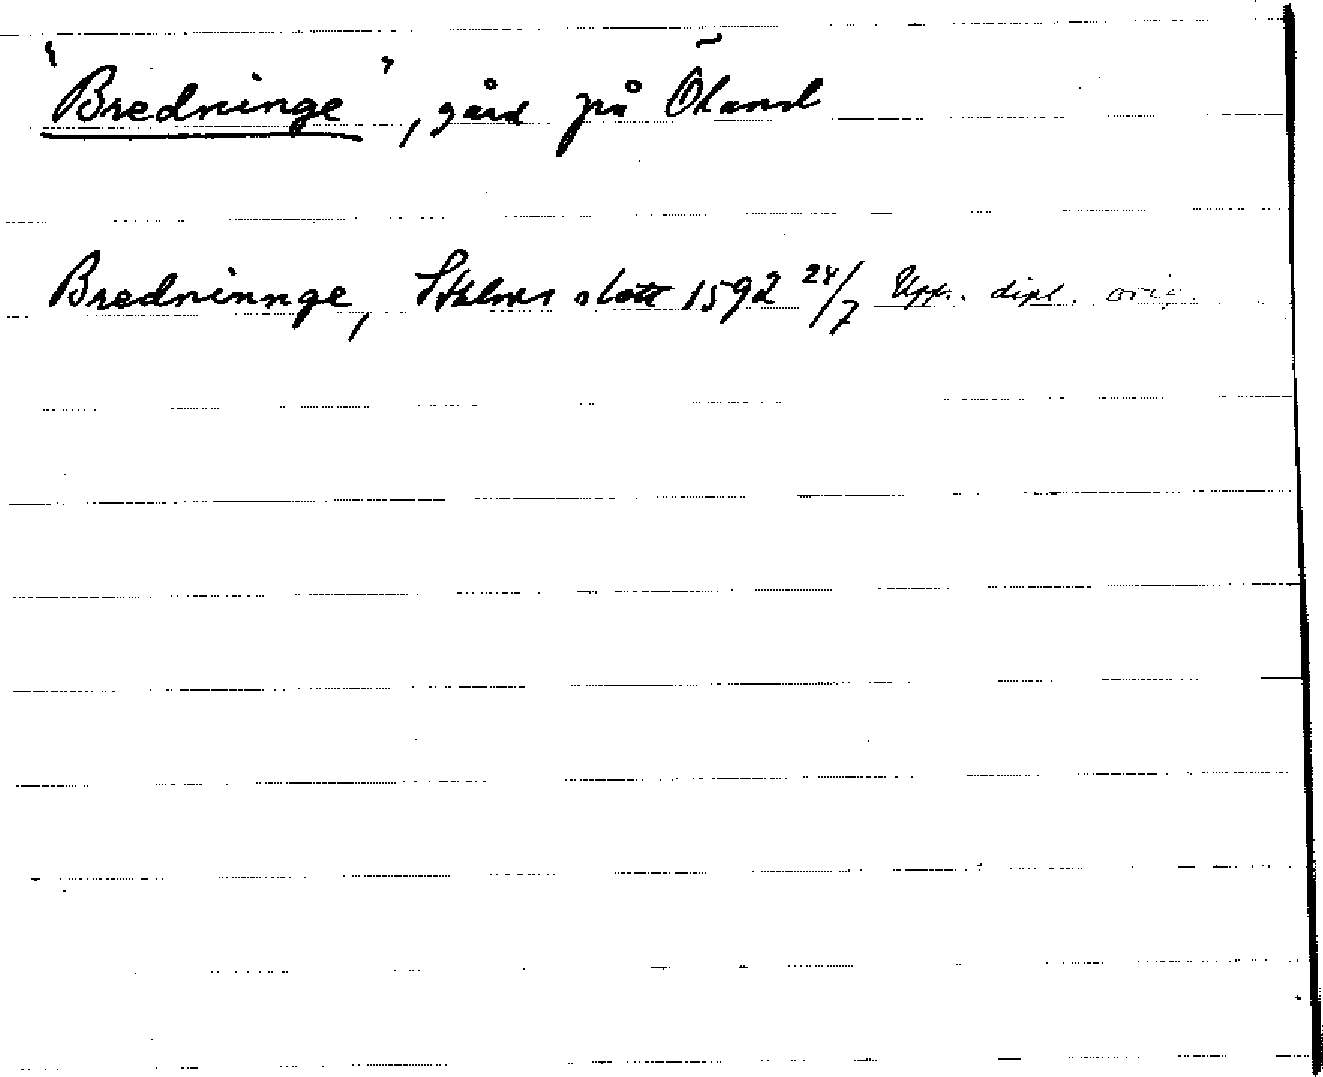 "Bredninge", gård på Öland
Bredninnge, slott 1592 24/7 Upps. dipl. orig.